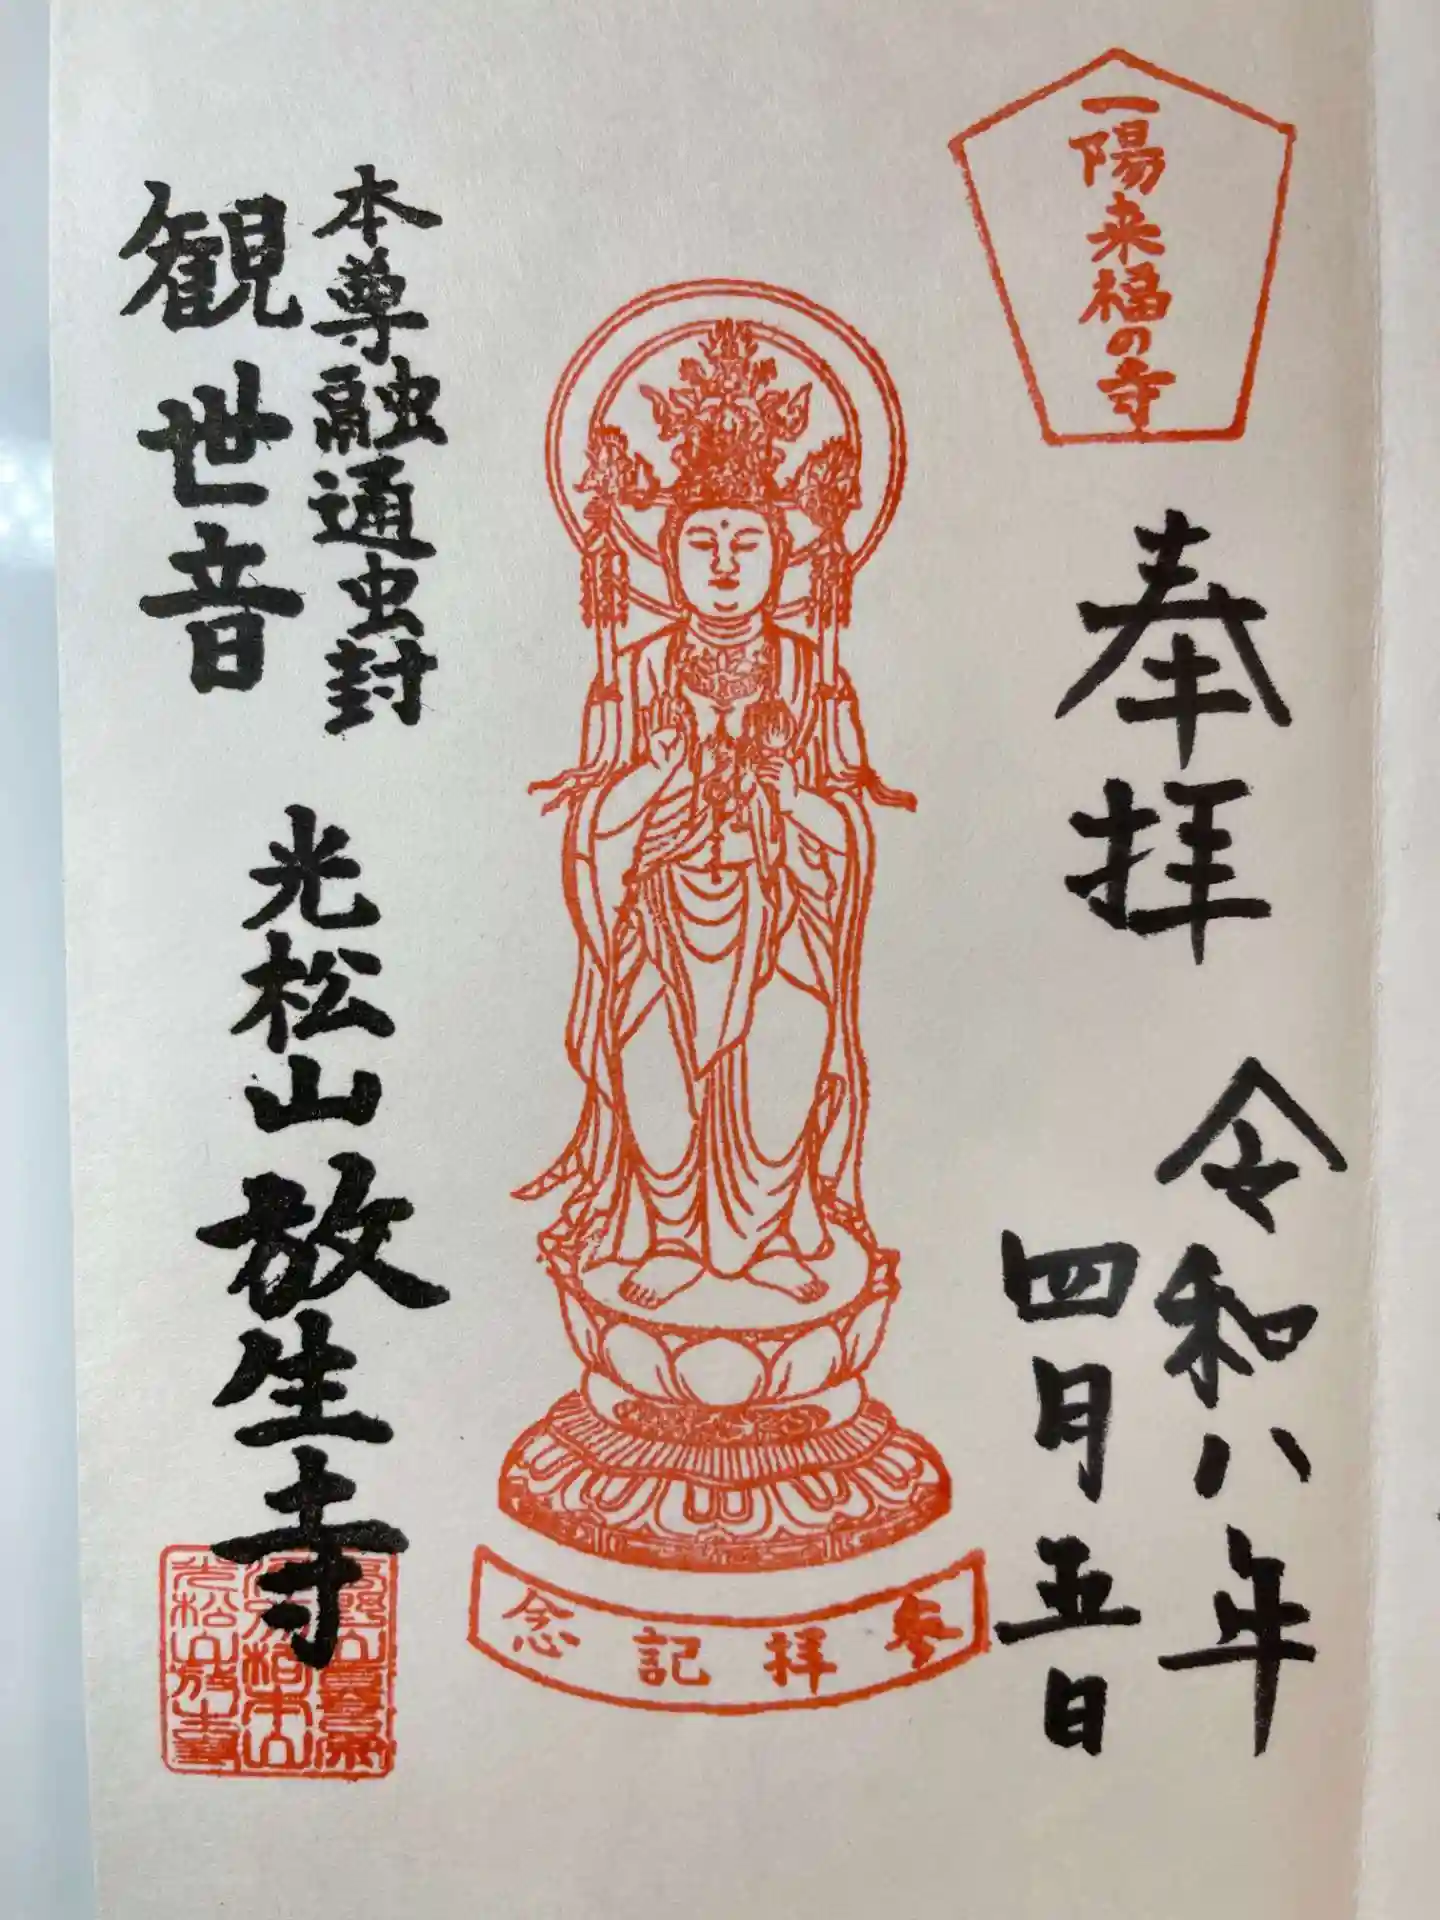 一陽来福の寺
奉拝
令和八年
四月五日
参拝記念
本尊融通虫封
観世音
光松山放生寺
光松山放生寺